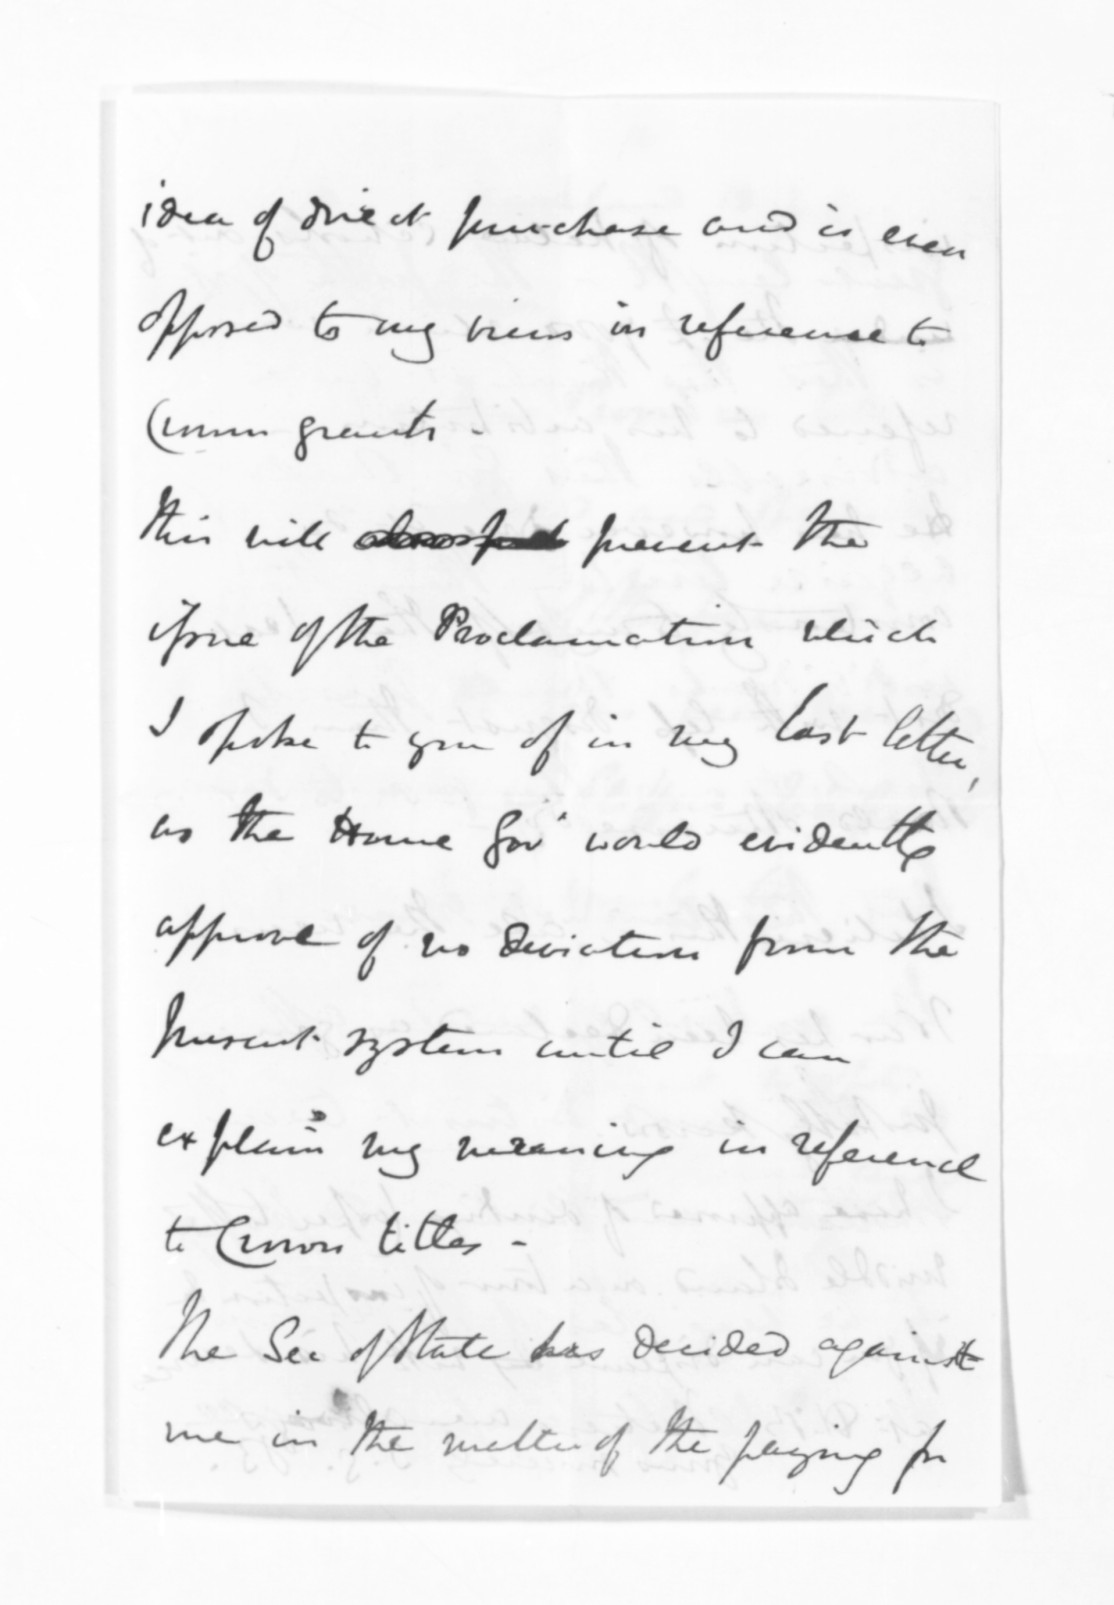 idea of direct purchase and is even
opposed to my views in reference to
Crown grants -
This will prevent the
issue of the Proclamation which
I spoke to you of in my last letter,
as the Home Govt would evidently
approve of no deviation from the
present system until I can
explain my meaning in reference
to Crown titles -
The Sec of State has decided against
me in the matter of the paying for